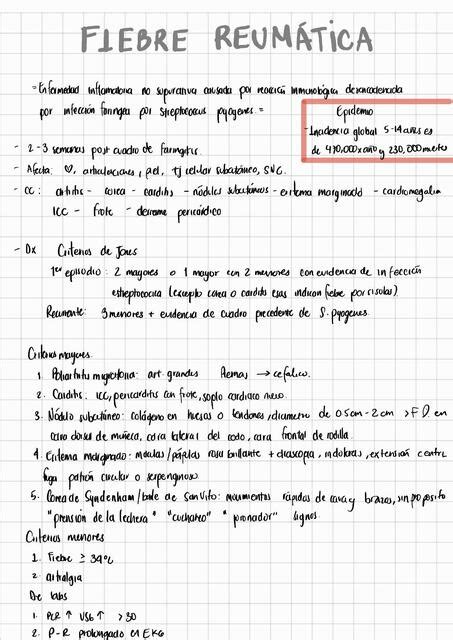 FIEBRE REUMÁTICA
= Enfermedad inflamatoria no supurativa causada por reacción inmunológica desencadenada
por infección faríngea por Streptococcus pyogenes. =
Epidemio
- Incidencia global 5-14 años es
de 470,000 x año y 230,000 muertes
- 2-3 semanas post cuadro de faringitis.
- Afecta: ♡, articulaciones, piel, tj celular subcutáneo, SNC.
- CC: artritis - corea - carditis - nódulos subcutáneos - eritema marginado - cardiomegalia
ICC - frote - derrame pericárdico
- Dx Criterios de Jones
1er episodio: 2 mayores o 1 mayor con 2 menores con evidencia de infección
estreptocócica (excepto corea o carditis esas indican fiebre por si solas).
Recurrente: 3 menores + evidencia de cuadro precedente de S. pyogenes.
Criterios mayores
1. Poliartritis migratoria: art. grandes Piernas → cefálico.
2. Carditis: ICC, pericarditis con frote, soplo cardiaco nuevo.
3. Nódulo subcutáneo: colágeno en huesos o tendones, diametro de 0.5cm - 2 cm > F en
cara dorsal de muñeca, cara lateral del codo, cara frontal de rodilla.
4. Eritema marginado: máculas/pápulas rosa brillante + diascopia, indoloras, extensión centri
fuga patrón circular o serpenginoso
5. Corea de Syndenham/baile de San Vito: movimientos rápidos de cara y brazos, sin propósito
"prensión de la lechera" "cuchareo" "pronador" signos.
Criterios menores
1. Fiebre ≥ 39°C
2. artralgia
De labs
1. PCR ↑ VSG ↑ > 30
2. P-R prolongado en EKG